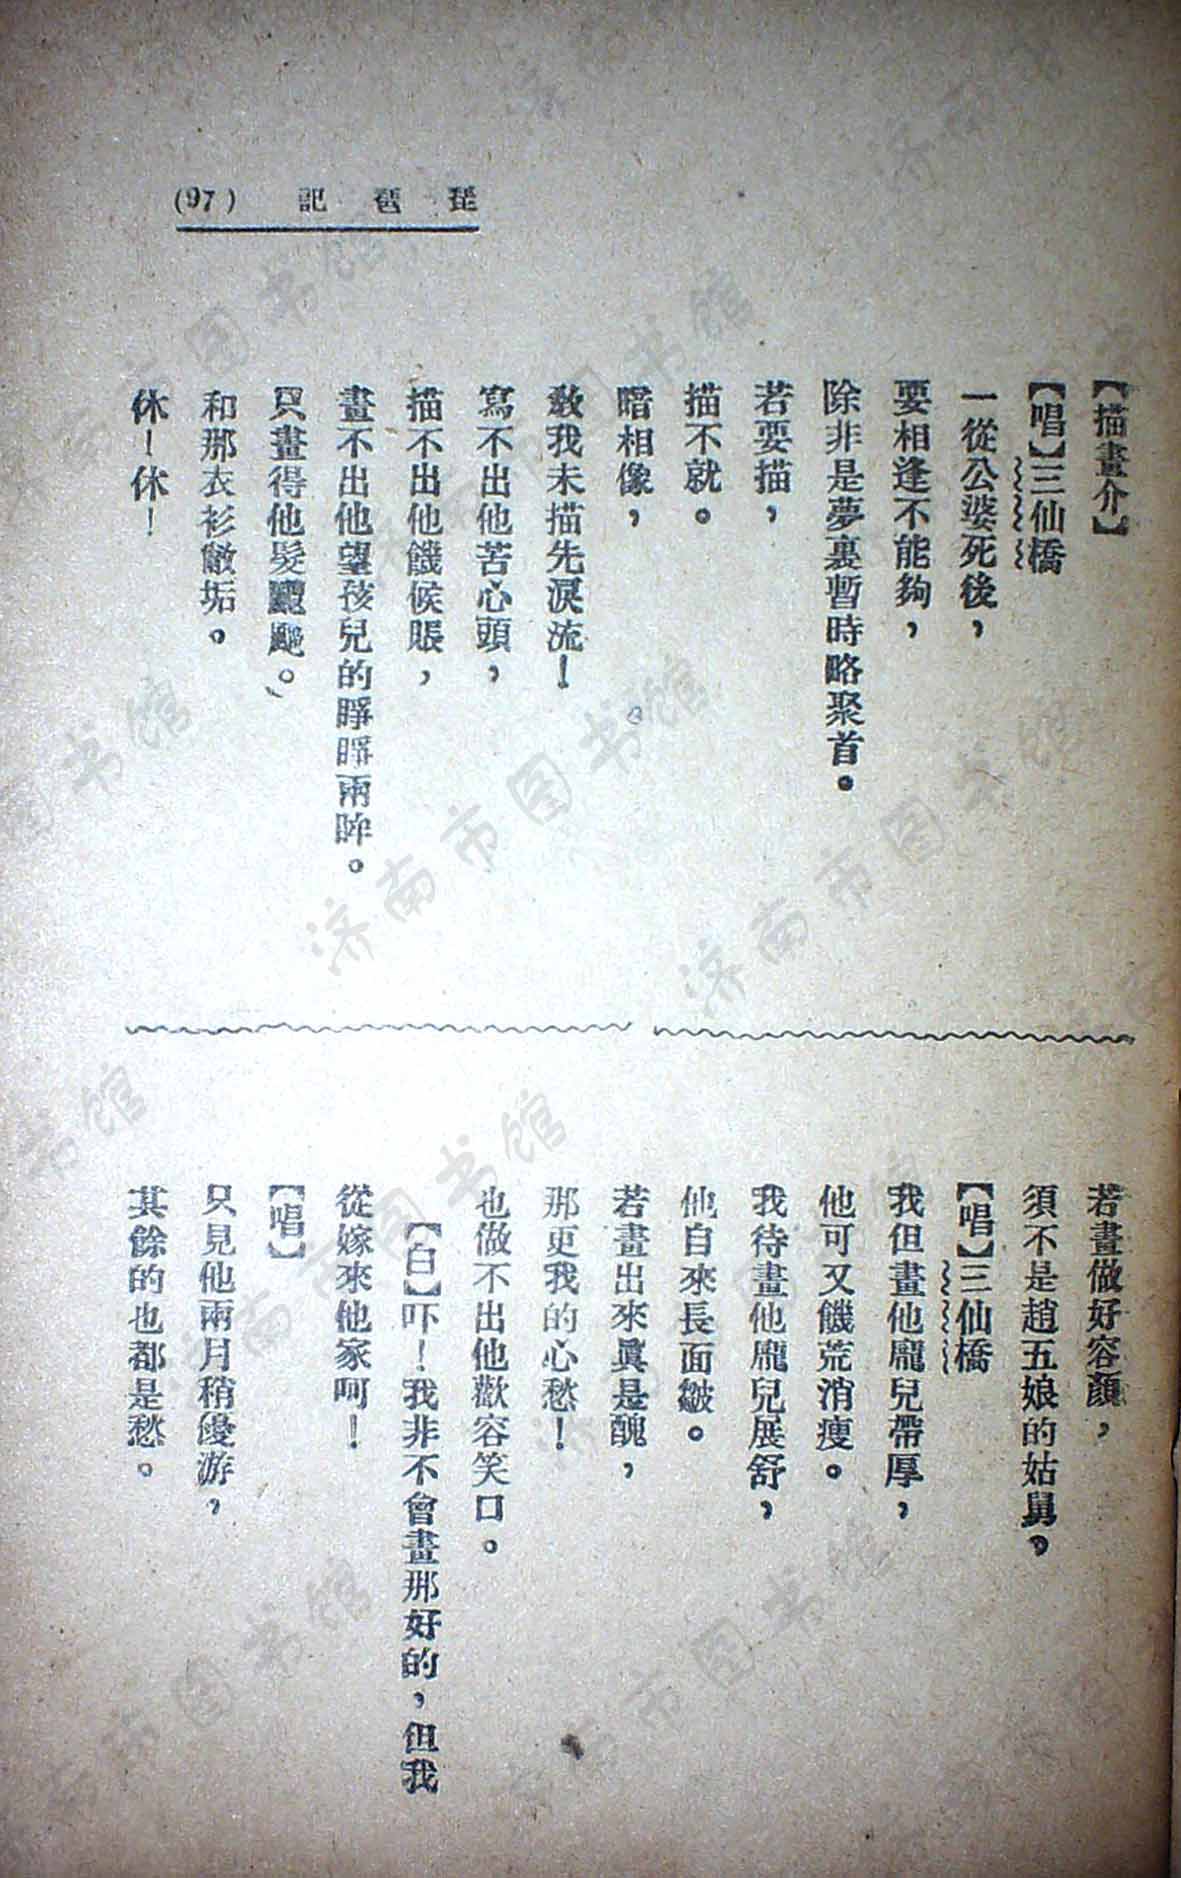 琵琶記 (97)
【描畫介】
【唱】三仙橋
一從公婆死後，
要相逢不能夠，
除非是夢裏暫時略聚首。
若要描，
描不就。
暗相像，
敎我未描先淚流！
寫不出他苦心頭，
描不出他饑候賬，
畫不出他望孩兒的睜睜兩眸。
只畫得他髮颼颼。
和那衣衫敝垢。
休！休！
若畫做好容顏，
須不是趙五娘的姑舅。
【唱】三仙橋
我但畫他龐兒帶厚，
他可又饑荒消瘦。
我待畫他龐兒展舒，
他自來長面皺。
若畫出來眞是醜，
那更我的心愁！
也做不出他歡容笑口。
【白】吓！我非不會畫那好的，但我
從嫁來他家呵！
【唱】
只見他兩月稍優游，
其餘的也都是愁。
济南市图书馆